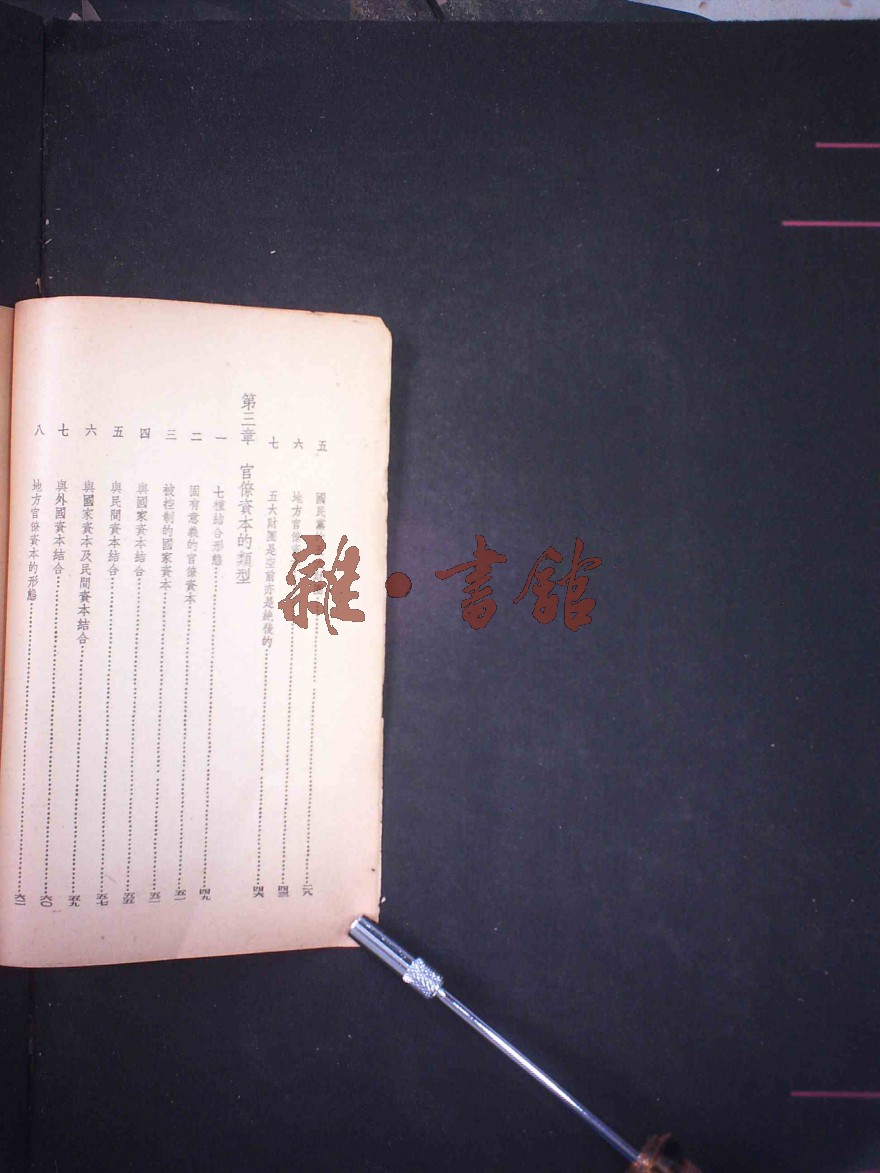 五 國民黨
六 地方官僚資
七 五大財團是空前亦是絕後的 四六
第三章 官僚資本的類型
一 七種結合形態 四九
二 固有意義的官僚資本 五一
三 被控制的國家資本 五二
四 與國家資本結合 五五
五 與民間資本結合 五七
六 與國家資本及民間資本結合 五九
七 與外國資本結合 六〇
八 地方官僚資本的形態
雜·書館